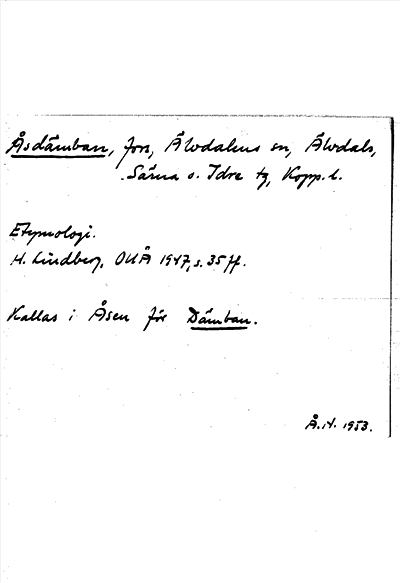 Åsdämban, fors, Älvdalens sn, Älvdals,
Särna o. Idre tg, Kopp. l.
Etymologi.
H. Lindberg, OUÅ 1947, s. 35 ff.
Kallas i Åsen för Dämban.
Å.N. 1953.